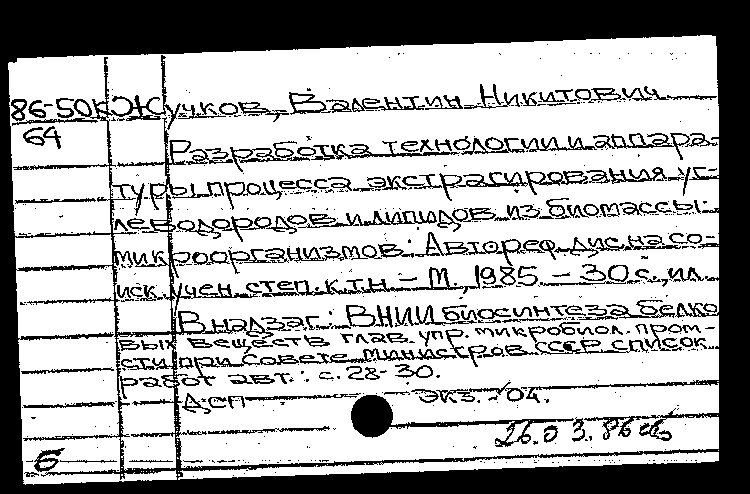 86-50к Жучков, Валентин Никитович
64
Разработка технологии и аппара-
туры процесса экстрагирования уг-
леводородов и липидов из биомассы
микроорганизмов: Автореф. дис. на со-
иск. учен. степ. к.т.н. – М., 1985. – 30 с., ил.
В надзаг.: ВНИИ биосинтеза белко
вых веществ глав. упр. микробиол. пром-
сти при Совете Министров СССР. Список
работ авт.: с. 28-30.
ДСП экз. 04.
26.03.86
Б